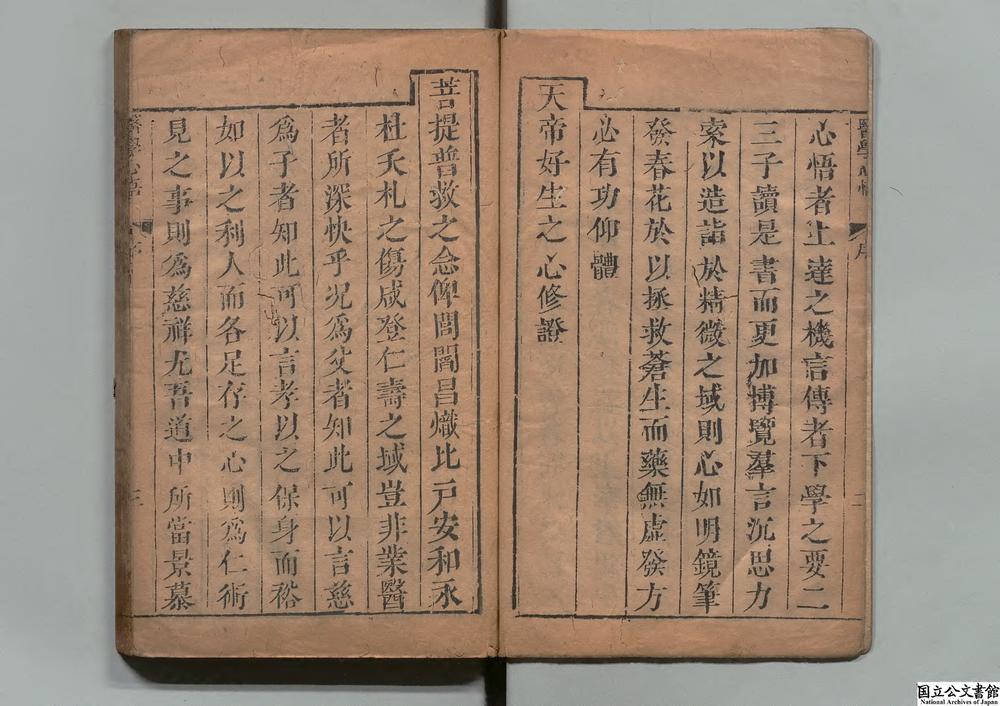 心悟者上達之機言傳者下學之要二
三子讀是書而更加博覽羣言沉思力
索以造詣於精微之域則心如明鏡筆
發春花於以拯救蒼生而藥無虛發方
必有功仰體
天帝好生之心修證
菩提普救之念俾閭閻昌熾比戸安和永
杜夭札之傷咸登仁壽之域豈非業醫
者所深快乎况為父者知此可以言慈
為子者知此可以言孝以之保身而裕
如以之利人而各足存之心則為仁術
見之事則為慈祥尤吾道中所當景慕
醫學心悟
序
二
醫學心悟
序
三
国立公文書館
National Archives of Japan